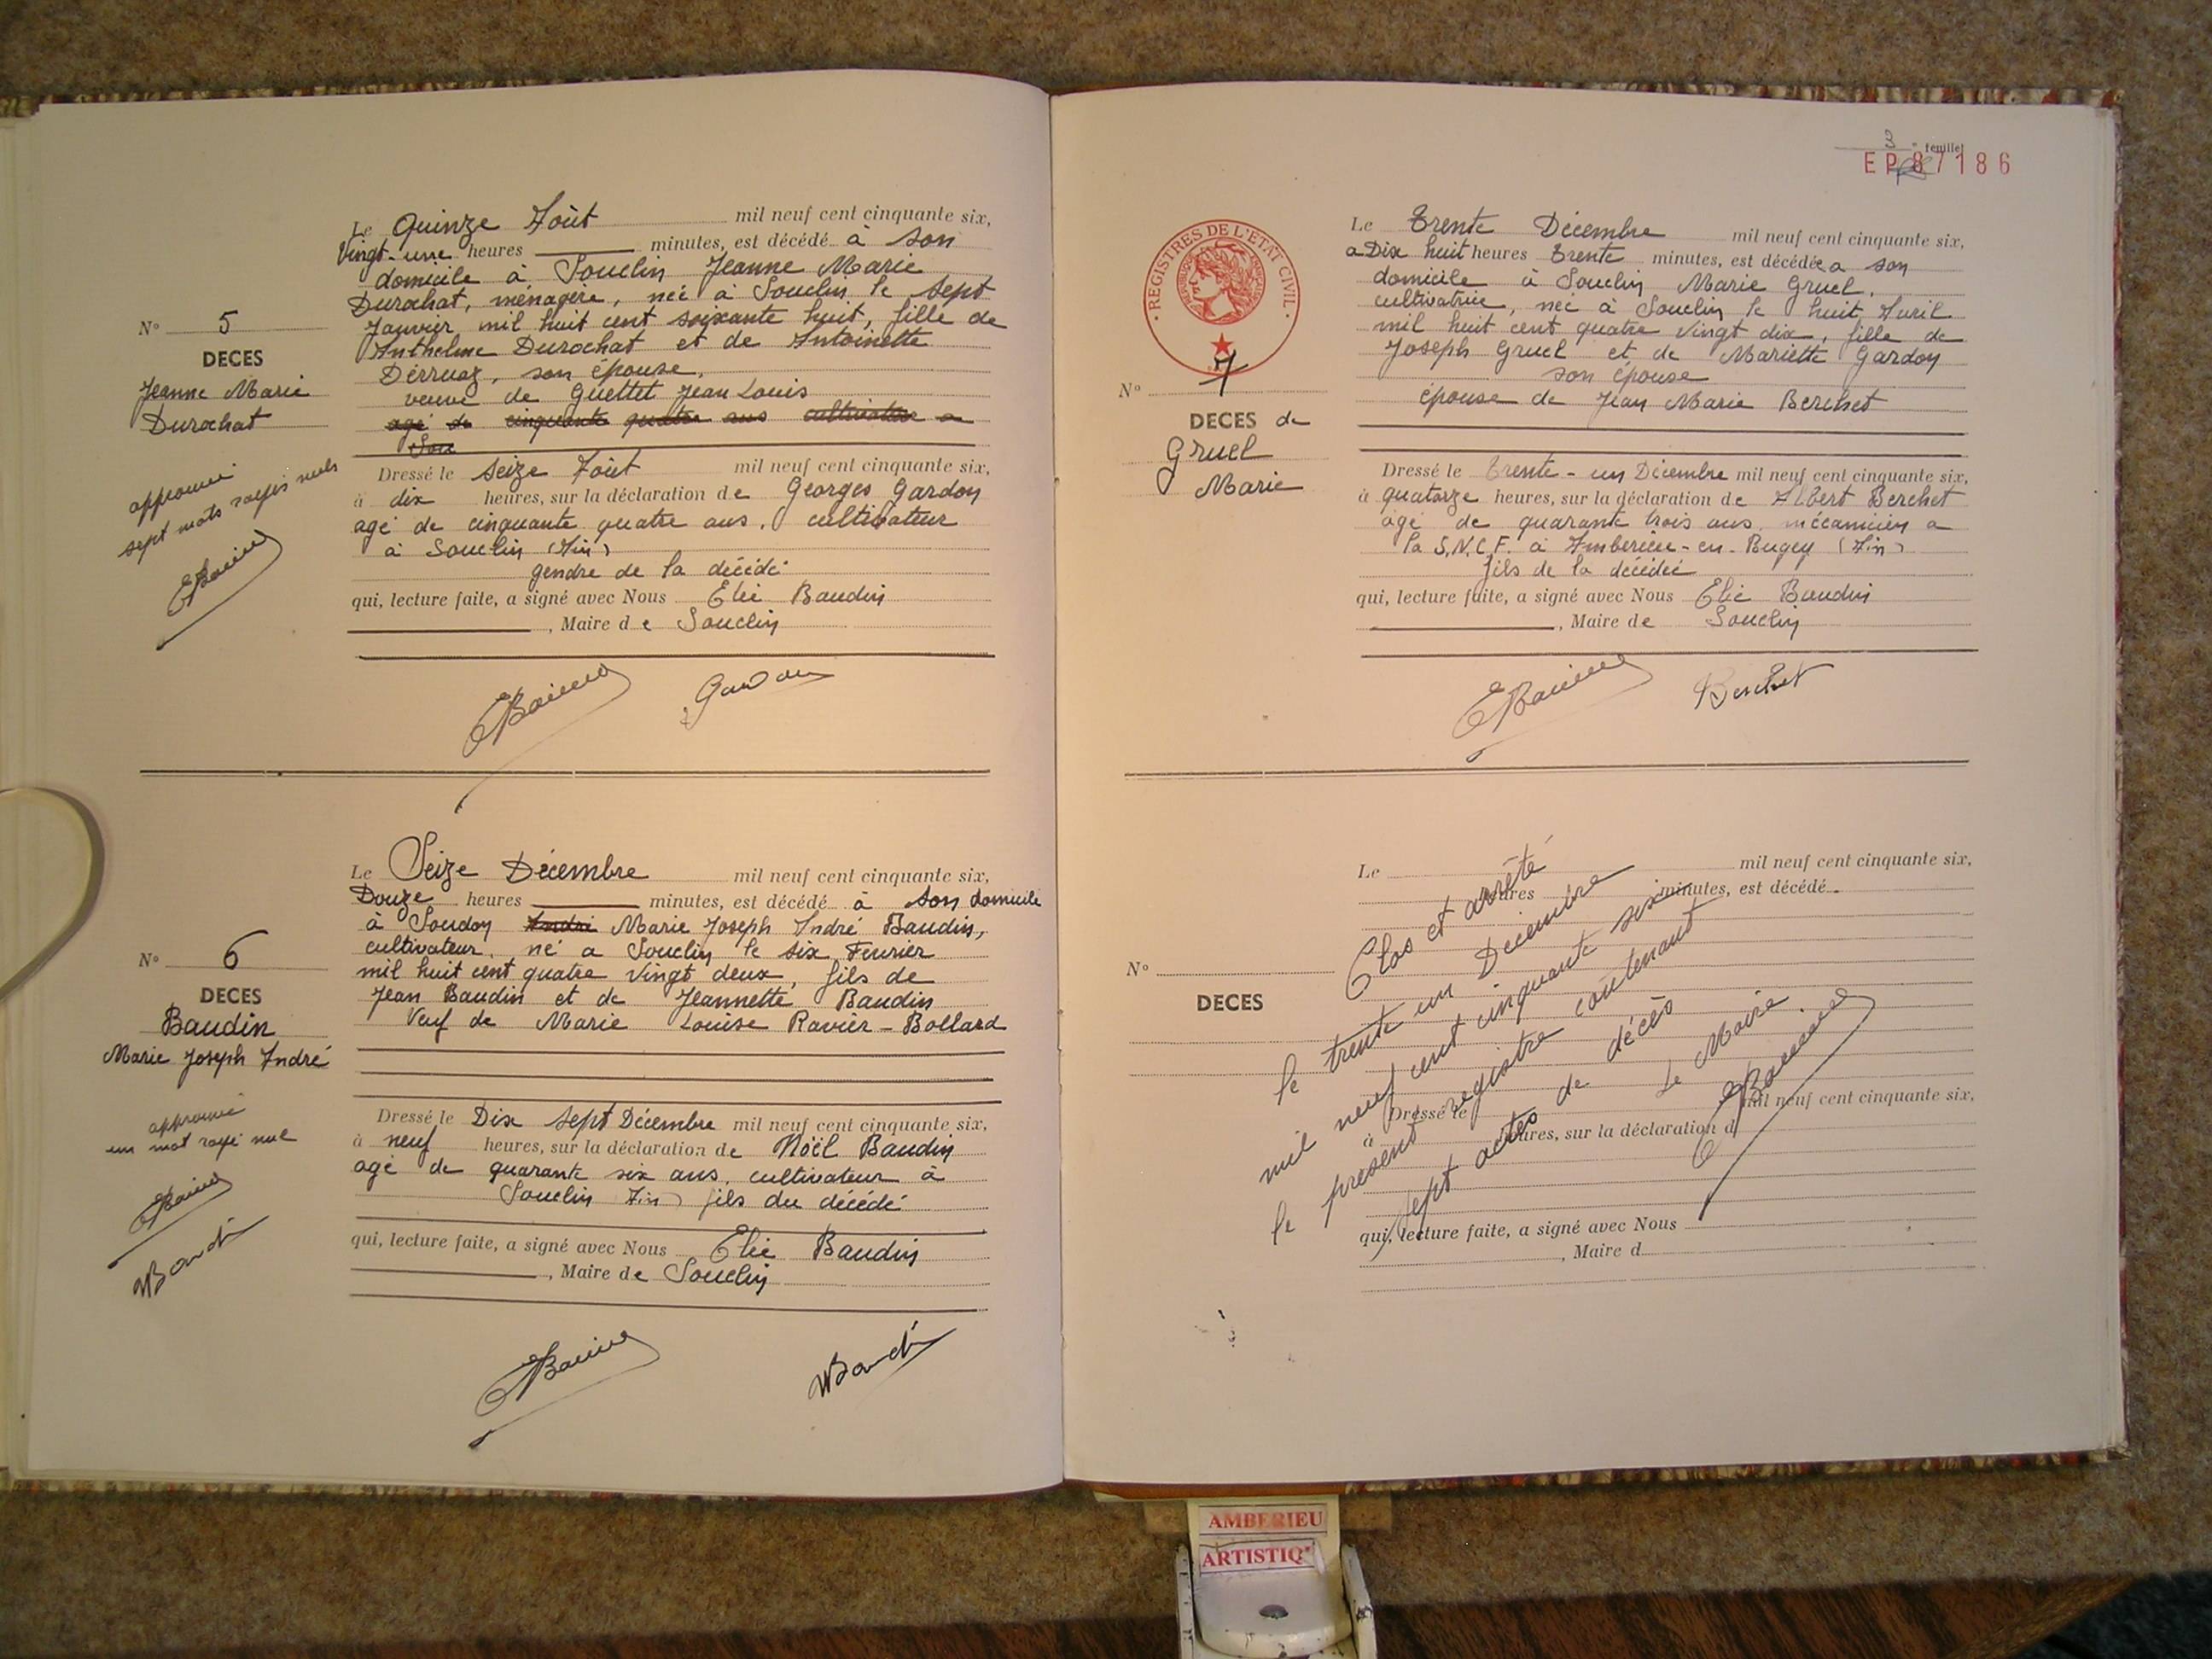 Le Quinze Août mil neuf cent cinquante six,
Vingt-une heures minutes, est décédé à son
domicile à Souclin Jeanne Marie
Durochat, ménagère, née à Souclin le sept
Janvier mil huit cent soixante huit, fille de
Anthelme Durochat et de Antoinette
Derruaz, son épouse,
veuve de Guettet Jean Louis
agé de cinquante quatre ans cultivateur a
Sou
N° 5
DECES
Jeanne Marie
Durochat
approuvé
sept mots rayés nuls
EBaudin
Dressé le seize Août mil neuf cent cinquante six,
à dix heures, sur la déclaration de Georges Gardon
agé de cinquante quatre ans, cultivateur
à Souclin (Ain)
gendre de la décédé
qui, lecture faite, a signé avec Nous Elie Baudin
, Maire de Souclin
EBaudin Gardon
Le Seize Décembre mil neuf cent cinquante six,
Douze heures minutes, est décédé à son domicile
à Soudon André Marie Joseph André Baudin,
cultivateur, né a Souclin le six Fevrier
mil huit cent quatre vingt deux, fils de
Jean Baudin et de Jeannette Baudin
Veuf de Marie Louise Ravier-Bollard
N° 6
DECES
Baudin
Marie Joseph André
approuvé
un mot rayé nul
EBaudin
NBaudin
Dressé le Dix sept Décembre mil neuf cent cinquante six,
à neuf heures, sur la déclaration de Noël Baudin
agé de quarante six ans, cultivateur à
Souclin Ain) fils du décédé
qui, lecture faite, a signé avec Nous Elie Baudin
, Maire de Souclin
EBaudin NBaudin
3e feuillet
EP87186
REGISTRES DE L'ETAT CIVIL
Le Trente Décembre mil neuf cent cinquante six,
a Dix huit heures Trente minutes, est décédée a son
domicile à Souclin Marie Gruel,
cultivatrice, née à Souclin le huit Avril
mil huit cent quatre vingt dix, fille de
Joseph Gruel et de Mariette Gardon
son épouse
épouse de Jean Marie Berchet
N° 7
DECES de
Gruel
Marie
Dressé le trente-un Décembre mil neuf cent cinquante six,
à quatorze heures, sur la déclaration de Albert Berchet
agé de quarante trois ans, mécanicien a
la S.N.C.F. à Amberieu-en-Bugey (Ain)
fils de la décédée
qui, lecture faite, a signé avec Nous Elie Baudin
, Maire de Souclin
EBaudin Berchet
Le mil neuf cent cinquante six,
heures minutes, est décédé
N°
DECES
Clos et arrêté
le trente un Décembre
mil neuf cent cinquante six
le présent registre contenant
sept actes de décès
Le Maire
EBaudin
Dressé le mil neuf cent cinquante six,
à heures, sur la déclaration d
qui, lecture faite, a signé avec Nous
, Maire d
AMBERIEU
ARTISTIQ